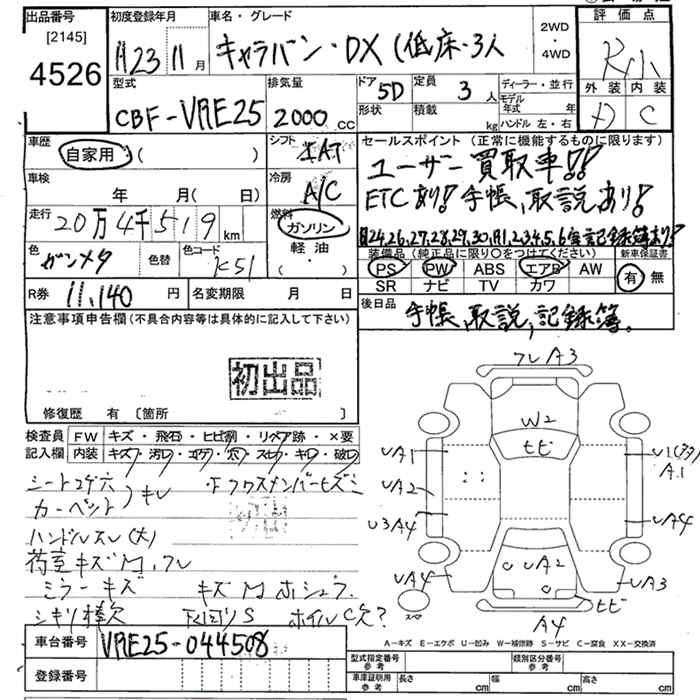 出品番号 [2145] 4526
初度登録年月 H23 11月
車名・グレード キャラバン・DX (低床・3人
2WD ・ 4WD
評価点
外装 内装 C
型式 CBF-VRE25
排気量 2000 CC
ドア 形状 5D
定員 積載 3人 kg
ディーラー・並行
モデル年式 年
ハンドル 左・右
車歴 自家用 ( )
シフト IAT
車検 年 月 ( 日)
冷房 A/C
走行 20万4千519 km
燃料 ガソリン 軽油 ( ・ )
色 ガンメタ 色替 色コード K51
R券 11,140 円 名変期限 月 日
セールスポイント (正常に機能するものに限ります)
ユーザー買取車!!
ETCあり! 手帳、取説あり!
H24,26,27,28,29,30,R1,2,3,4,5,6 記録簿あり!
装備品 (純正品に限り○をつけてください) 新車保証書
PS PW ABS エアB AW 有・無
SR ナビ TV カワ
後日品 手帳、取説、記録簿。
注意事項申告欄 (不具合内容等は具体的に記入して下さい)
初出品
修復歴 有 [箇所 ]
検査員 記入欄
FW キズ・飛石・ヒビ割・リペア跡・×要
内装 キズ・汚レ・コゲ・穴・スレ・キレ・破レ
シートコゲ穴
カーペット キレ
ハンドルスレ(大)
荷室キズM,フレ
ミラーキズ キズM
シキリ棒欠 S ホイルC欠?
フレA3
W2
ヒビ
UA1
UA2
U3A4
UA4
A1
UA4
UA2
UA3
ヒビ
A4
スペ
A−キズ E−エクボ U−凹み W−補修跡 S−サビ C−腐食 XX−交換済
車台番号 VRE25-044508
登録番号
型式指定番号 参考 類別区分番号 参考
車庫証明用 参考 長さ cm 幅 cm 高さ cm